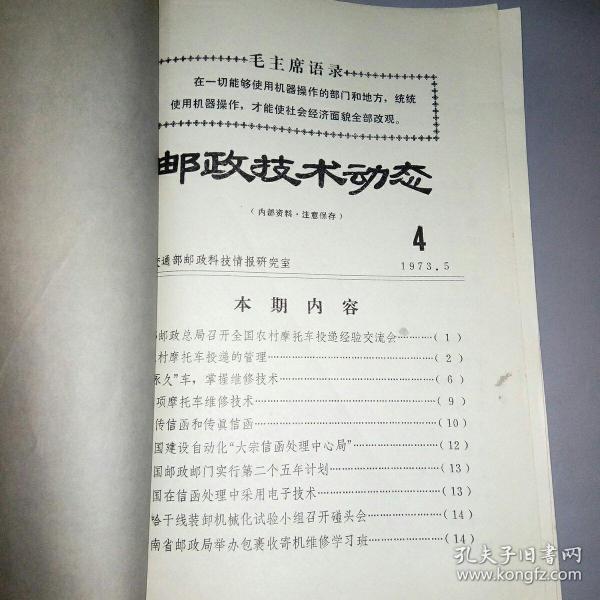 毛主席语录
在一切能够使用机器操作的部门和地方，统统
使用机器操作，才能使社会经济面貌全部改观。
邮政技术动态
（内部资料·注意保存）
4
交通部邮政科技情报研究室
1973.5
本期内容
邮政总局召开全国农村摩托车投递经验交流会…………(1)
村摩托车投递的管理…………(2)
永久”车，掌握维修技术…………(6)
项摩托车维修技术…………(9)
传信函和传真信函…………(10)
国建设自动化“大宗信函处理中心局”…………(12)
国邮政邮门实行第二个五年计划…………(13)
国在信函处理中采用电子技术…………(13)
哈干线装卸机械化试验小组召开碰头会…………(14)
南省邮政局举办包裹收寄机维修学习班…………(14)
孔夫子旧书网
www.kongfz.com